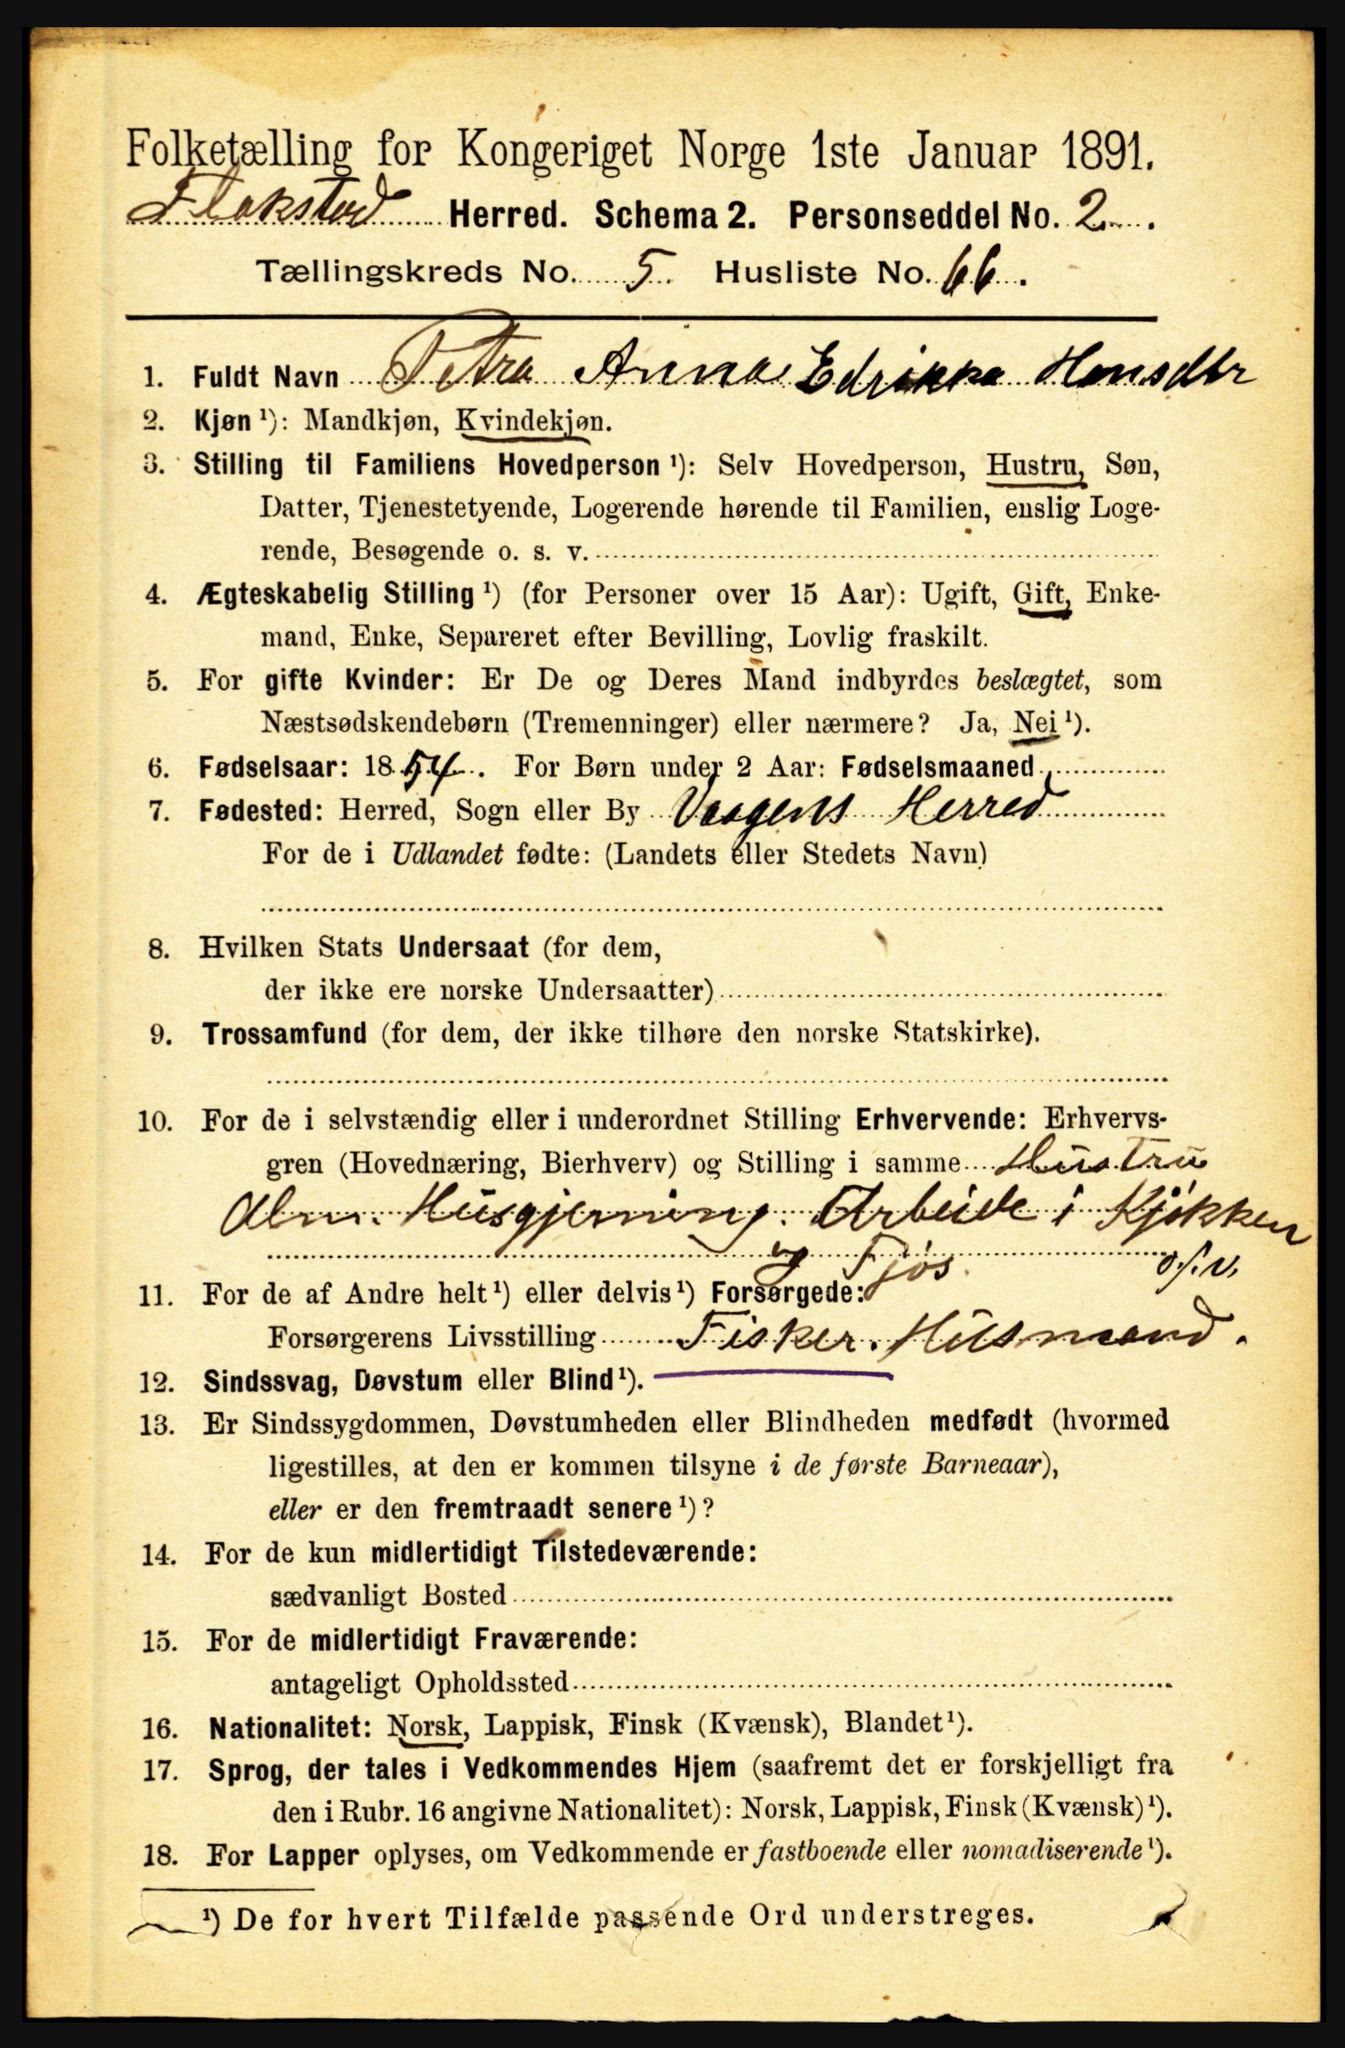 Folketælling for Kongeriget Norge 1ste Januar 1891.
Flakstad Herred. Schema 2. Personseddel No. 2.
Tællingskreds No. 5. Husliste No. 66.
1. Fuldt Navn Petra Anna Edrikka Hansdtr
2. Kjøn ¹): Mandkjøn, Kvindekjøn.
3. Stilling til Familiens Hovedperson ¹): Selv Hovedperson, Hustru, Søn,
Datter, Tjenestetyende, Logerende hørende til Familien, enslig Loge-
rende, Besøgende o. s. v.
4. Ægteskabelig Stilling ¹) (for Personer over 15 Aar): Ugift, Gift, Enke-
mand, Enke, Separeret efter Bevilling, Lovlig fraskilt.
5. For gifte Kvinder: Er De og Deres Mand indbyrdes beslægtet, som
Næstsødskendebørn (Tremenninger) eller nærmere? Ja, Nei ¹).
6. Fødselsaar: 1854. For Børn under 2 Aar: Fødselsmaaned
7. Fødested: Herred, Sogn eller By Vaagens Herred
For de i Udlandet fødte: (Landets eller Stedets Navn)
8. Hvilken Stats Undersaat (for dem,
der ikke ere norske Undersaatter)
9. Trossamfund (for dem, der ikke tilhøre den norske Statskirke).
10. For de i selvstændig eller i underordnet Stilling Erhvervende: Erhvervs-
gren (Hovednæring, Bierhverv) og Stilling i samme Hustru
Alm. Husgjerning. Arbeide i Kjøkken
og Fjøs. o.s.v.
11. For de af Andre helt ¹) eller delvis ¹) Forsørgede:
Forsørgerens Livsstilling Fisker. Husmand.
12. Sindssvag, Døvstum eller Blind ¹).
13. Er Sindssygdommen, Døvstumheden eller Blindheden medfødt (hvormed
ligestilles, at den er kommen tilsyne i de første Barneaar),
eller er den fremtraadt senere ¹)?
14. For de kun midlertidigt Tilstedeværende:
sædvanligt Bosted
15. For de midlertidigt Fraværende:
antageligt Opholdssted
16. Nationalitet: Norsk, Lappisk, Finsk (Kvænsk), Blandet ¹).
17. Sprog, der tales i Vedkommendes Hjem (saafremt det er forskjelligt fra
den i Rubr. 16 angivne Nationalitet): Norsk, Lappisk, Finsk (Kvænsk) ¹).
18. For Lapper oplyses, om Vedkommende er fastboende eller nomadiserende ¹).
¹) De for hvert Tilfælde passende Ord understreges.